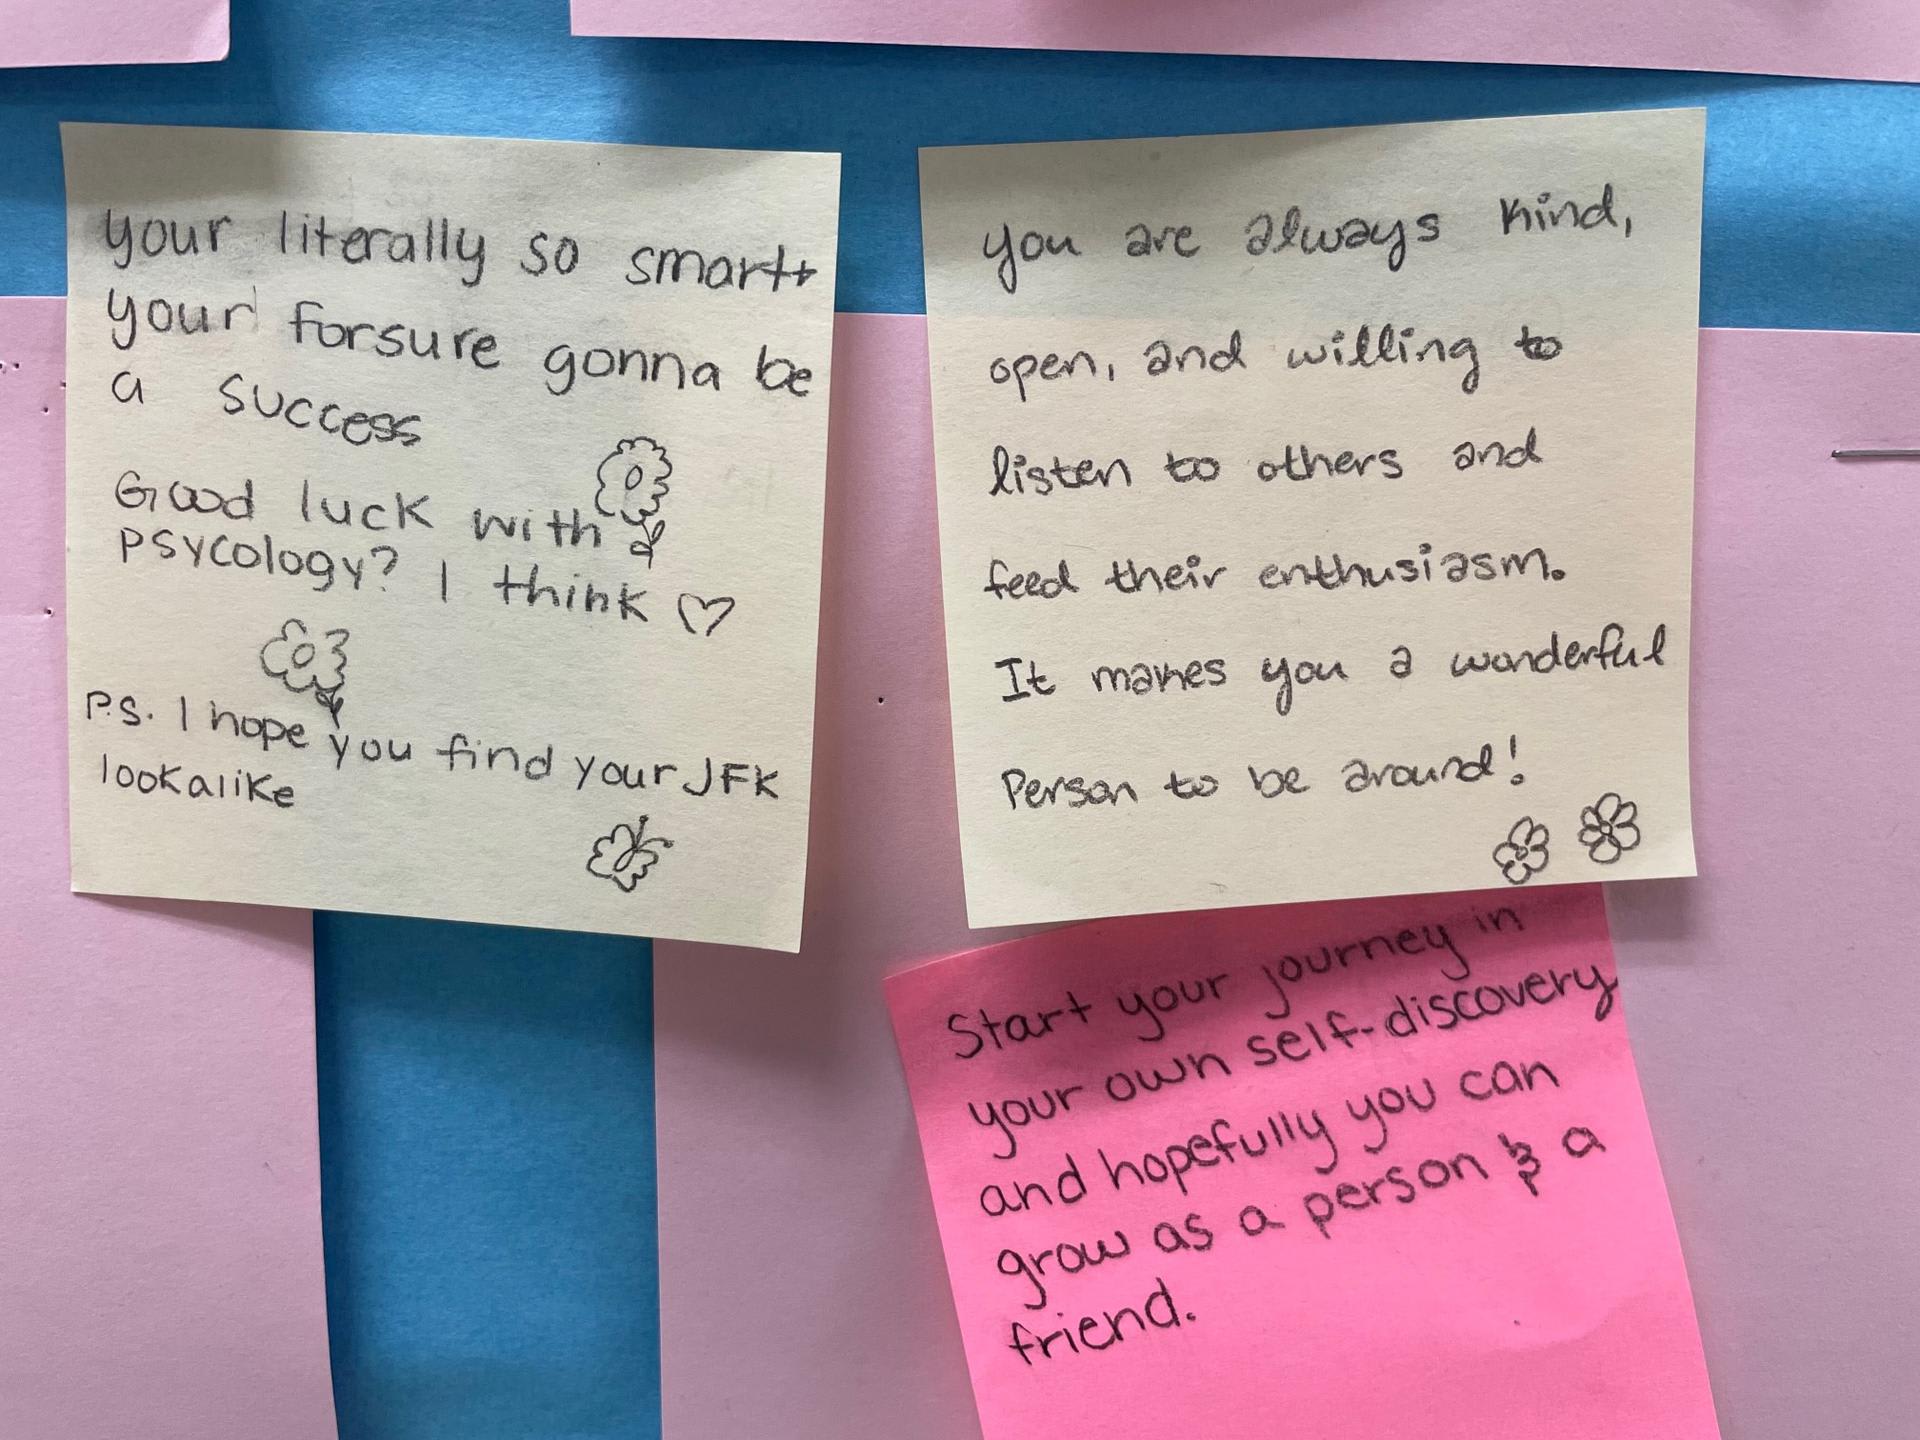 your literally so smartt
your forsure gonna be
a success
Good luck with
psycology? I think
P.S. I hope you find your JFK
lookalike
you are always kind,
open, and willing to
listen to others and
feed their enthusiasm.
It makes you a wonderful
Person to be around!
Start your journey in
your own self-discovery
and hopefully you can
grow as a person & a
friend.